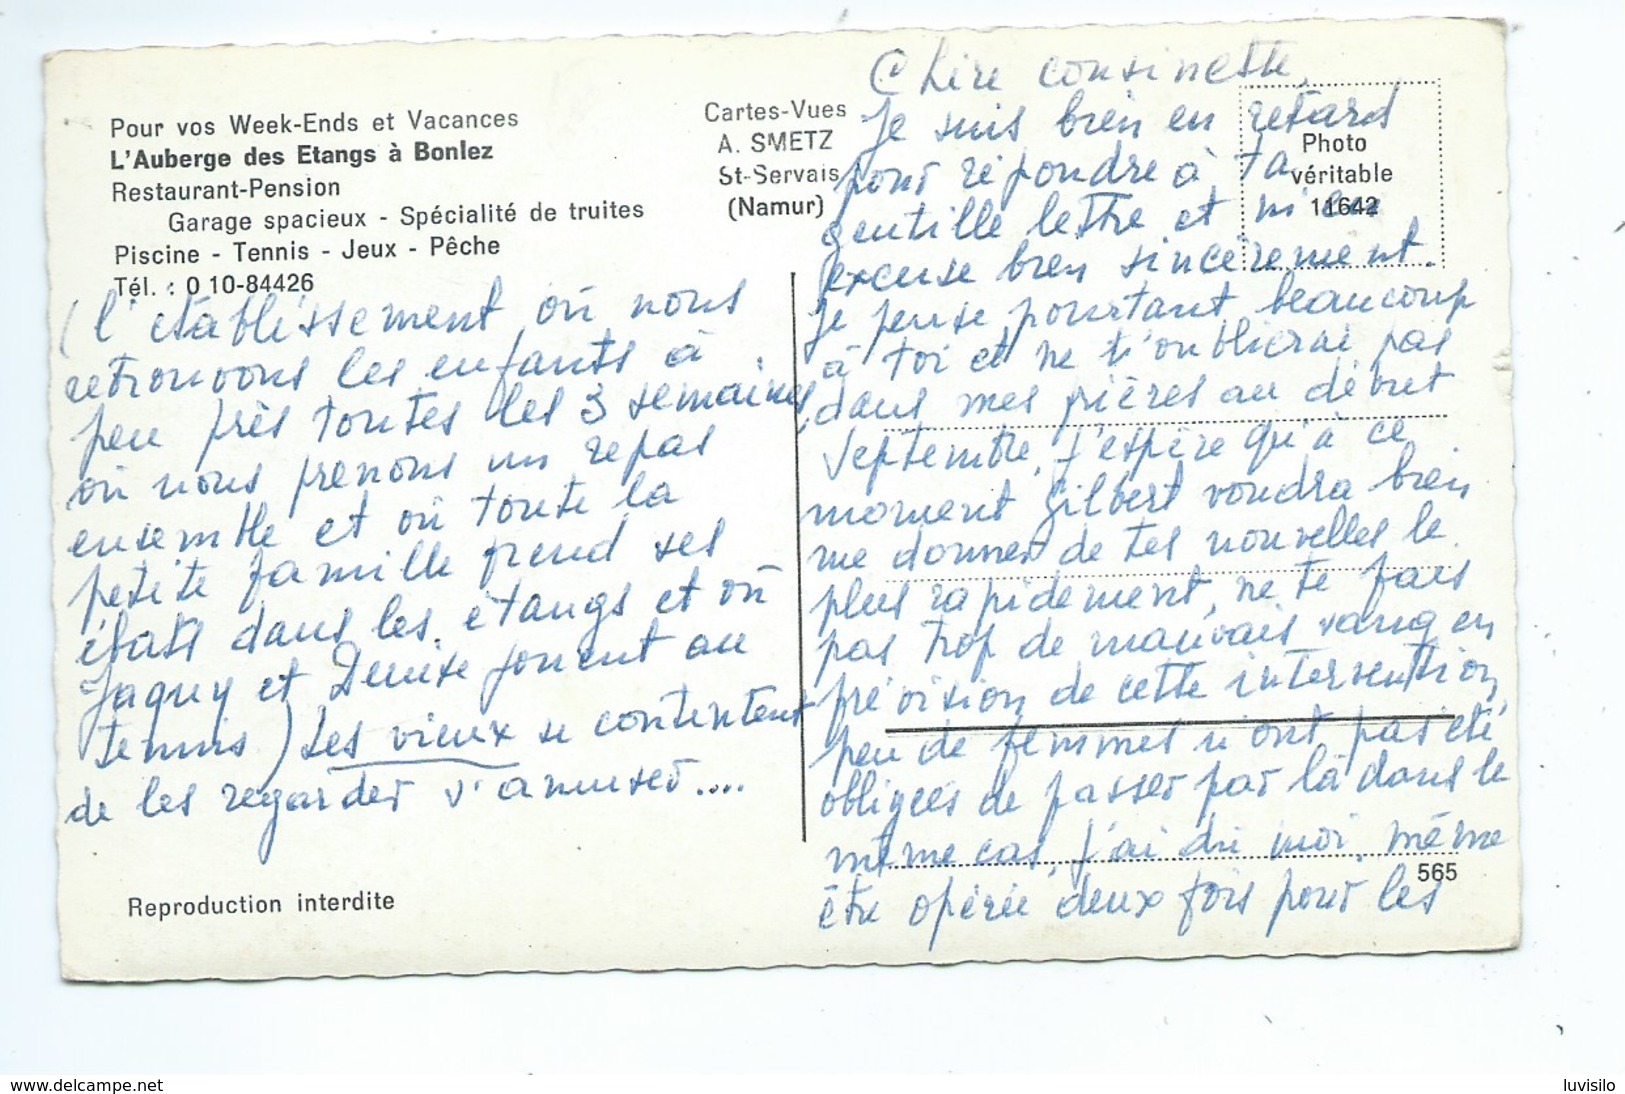 Pour vos Week-Ends et Vacances
L'Auberge des Etangs à Bonlez
Restaurant-Pension
Garage spacieux - Spécialité de truites
Piscine - Tennis - Jeux - Pêche
Tél. : 0 10-84426
(l'établissement où nous
retrouvons les enfants à
peu près toutes les 3 semaines,
où nous prenons un repas
ensemble et où toute la
petite famille prend ses
ébats dans les étangs et où
Jaquy et Denise jouent au
tennis) Les vieux se contentent
de les regarder s'amuser....
Reproduction interdite
Cartes-Vues
A. SMETZ
St-Servais
(Namur)
Photo
véritable
11642
Chère cousinette,
Je suis bien en retard
pour répondre à ta
gentille lettre et m'en
excuse bien sincèrement.
Je pense pourtant beaucoup
à toi et ne t'oublierai pas
dans mes prières au début
Septembre, j'espère qu'à ce
moment Gilbert voudra bien
me donner de tes nouvelles le
plus rapidement, ne te fais
pas trop de mauvais sang en
prévision de cette intervention,
peu de femmes n'ont pas été
obligées de passer par là dans le
même cas, j'ai dû moi, même
être opérée deux fois pour les
565
www.delcampe.net
luvisilo